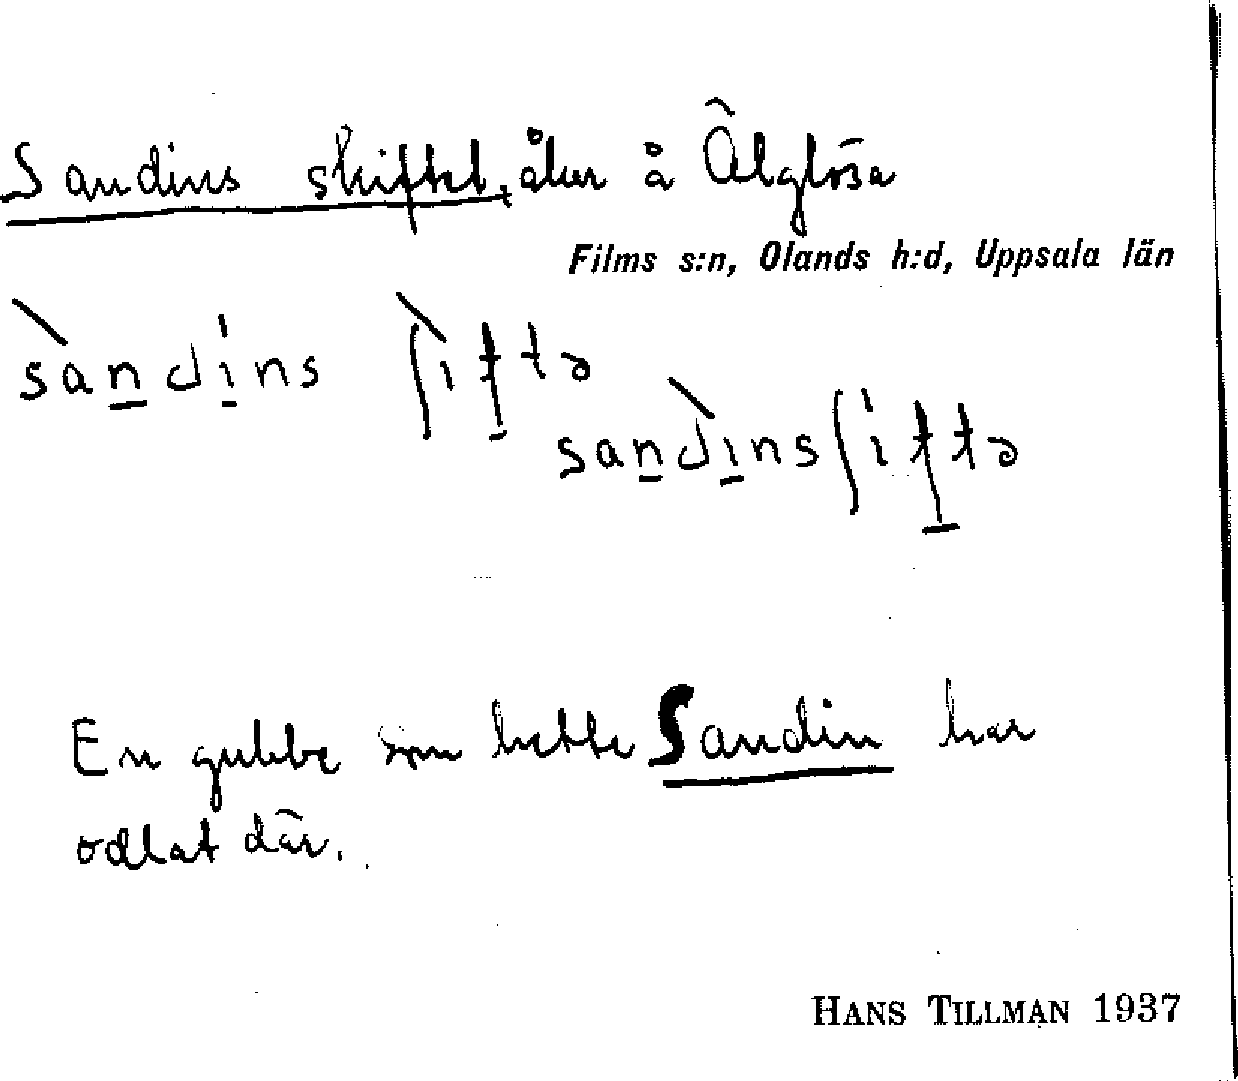 Sandins skiftet, åker å Älglösa
Films s:n, Olands h:d, Uppsala län
sàndins ʃìftə
sandìnsʃiftə
En gubbe som hette Sandin har
odlat där.
HANS TILLMAN 1937